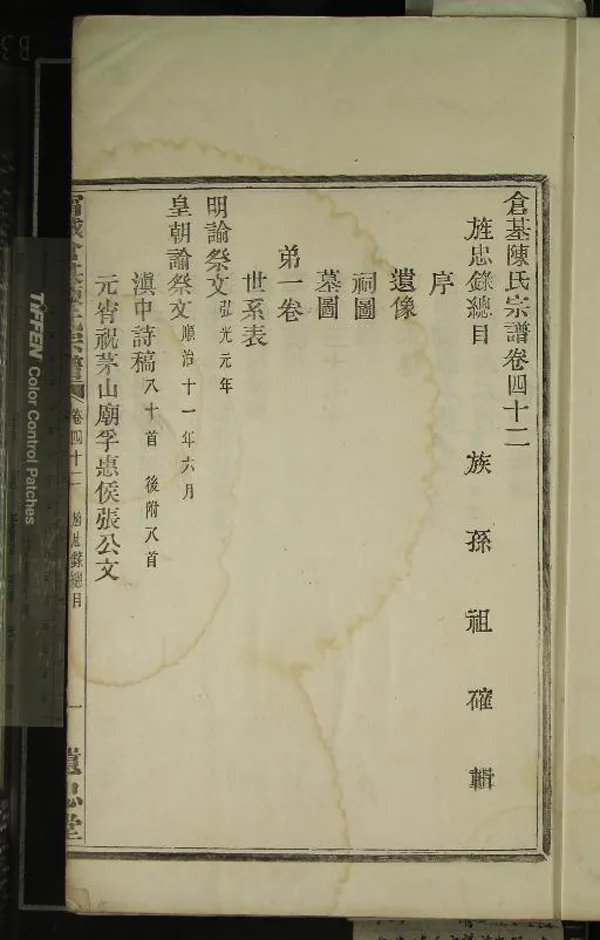 倉基陳氏宗譜卷四十二
旌忠錄總目 族孫祖確輯
序
遺像
祠圖
墓圖
弟一卷
世系表
明諭祭文弘光元年
皇朝諭祭文順治十一年六月
滇中詩稿八十首 後附八首
元宵祝茅山廟孚惠侯張公文
卷四十二 旌忠錄總目 一
TIFFEN Color Control Patches